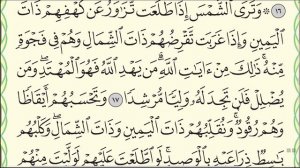 ١٦ ۞ وَتَرَى ٱلشَّمْسَ إِذَا طَلَعَت تَّزَٰوَرُ عَن كَهْفِهِمْ ذَاتَ
ٱلْيَمِينِ وَإِذَا غَرَبَت تَّقْرِضُهُمْ ذَاتَ ٱلشِّمَالِ وَهُمْ فِى فَجْوَةٍ
مِّنْهُ ۚ ذَٰلِكَ مِنْ ءَايَٰتِ ٱللَّهِ ۗ مَن يَهْدِ ٱللَّهُ فَهُوَ ٱلْمُهْتَدِ ۖ وَمَن
يُضْلِلْ فَلَن تَجِدَ لَهُۥ وَلِيًّا مُّرْشِدًا ١٧ وَتَحْسَبُهُمْ أَيْقَاظًا
وَهُمْ رُقُودٌ ۚ وَنُقَلِّبُهُمْ ذَاتَ ٱلْيَمِينِ وَذَاتَ ٱلشِّمَالِ ۖ وَكَلْبُهُم
بَٰسِطٌ ذِرَاعَيْهِ بِٱلْوَصِيدِ ۚ لَوِ ٱطَّلَعْتَ عَلَيْهِمْ لَوَلَّيْتَ مِنْهُمْ